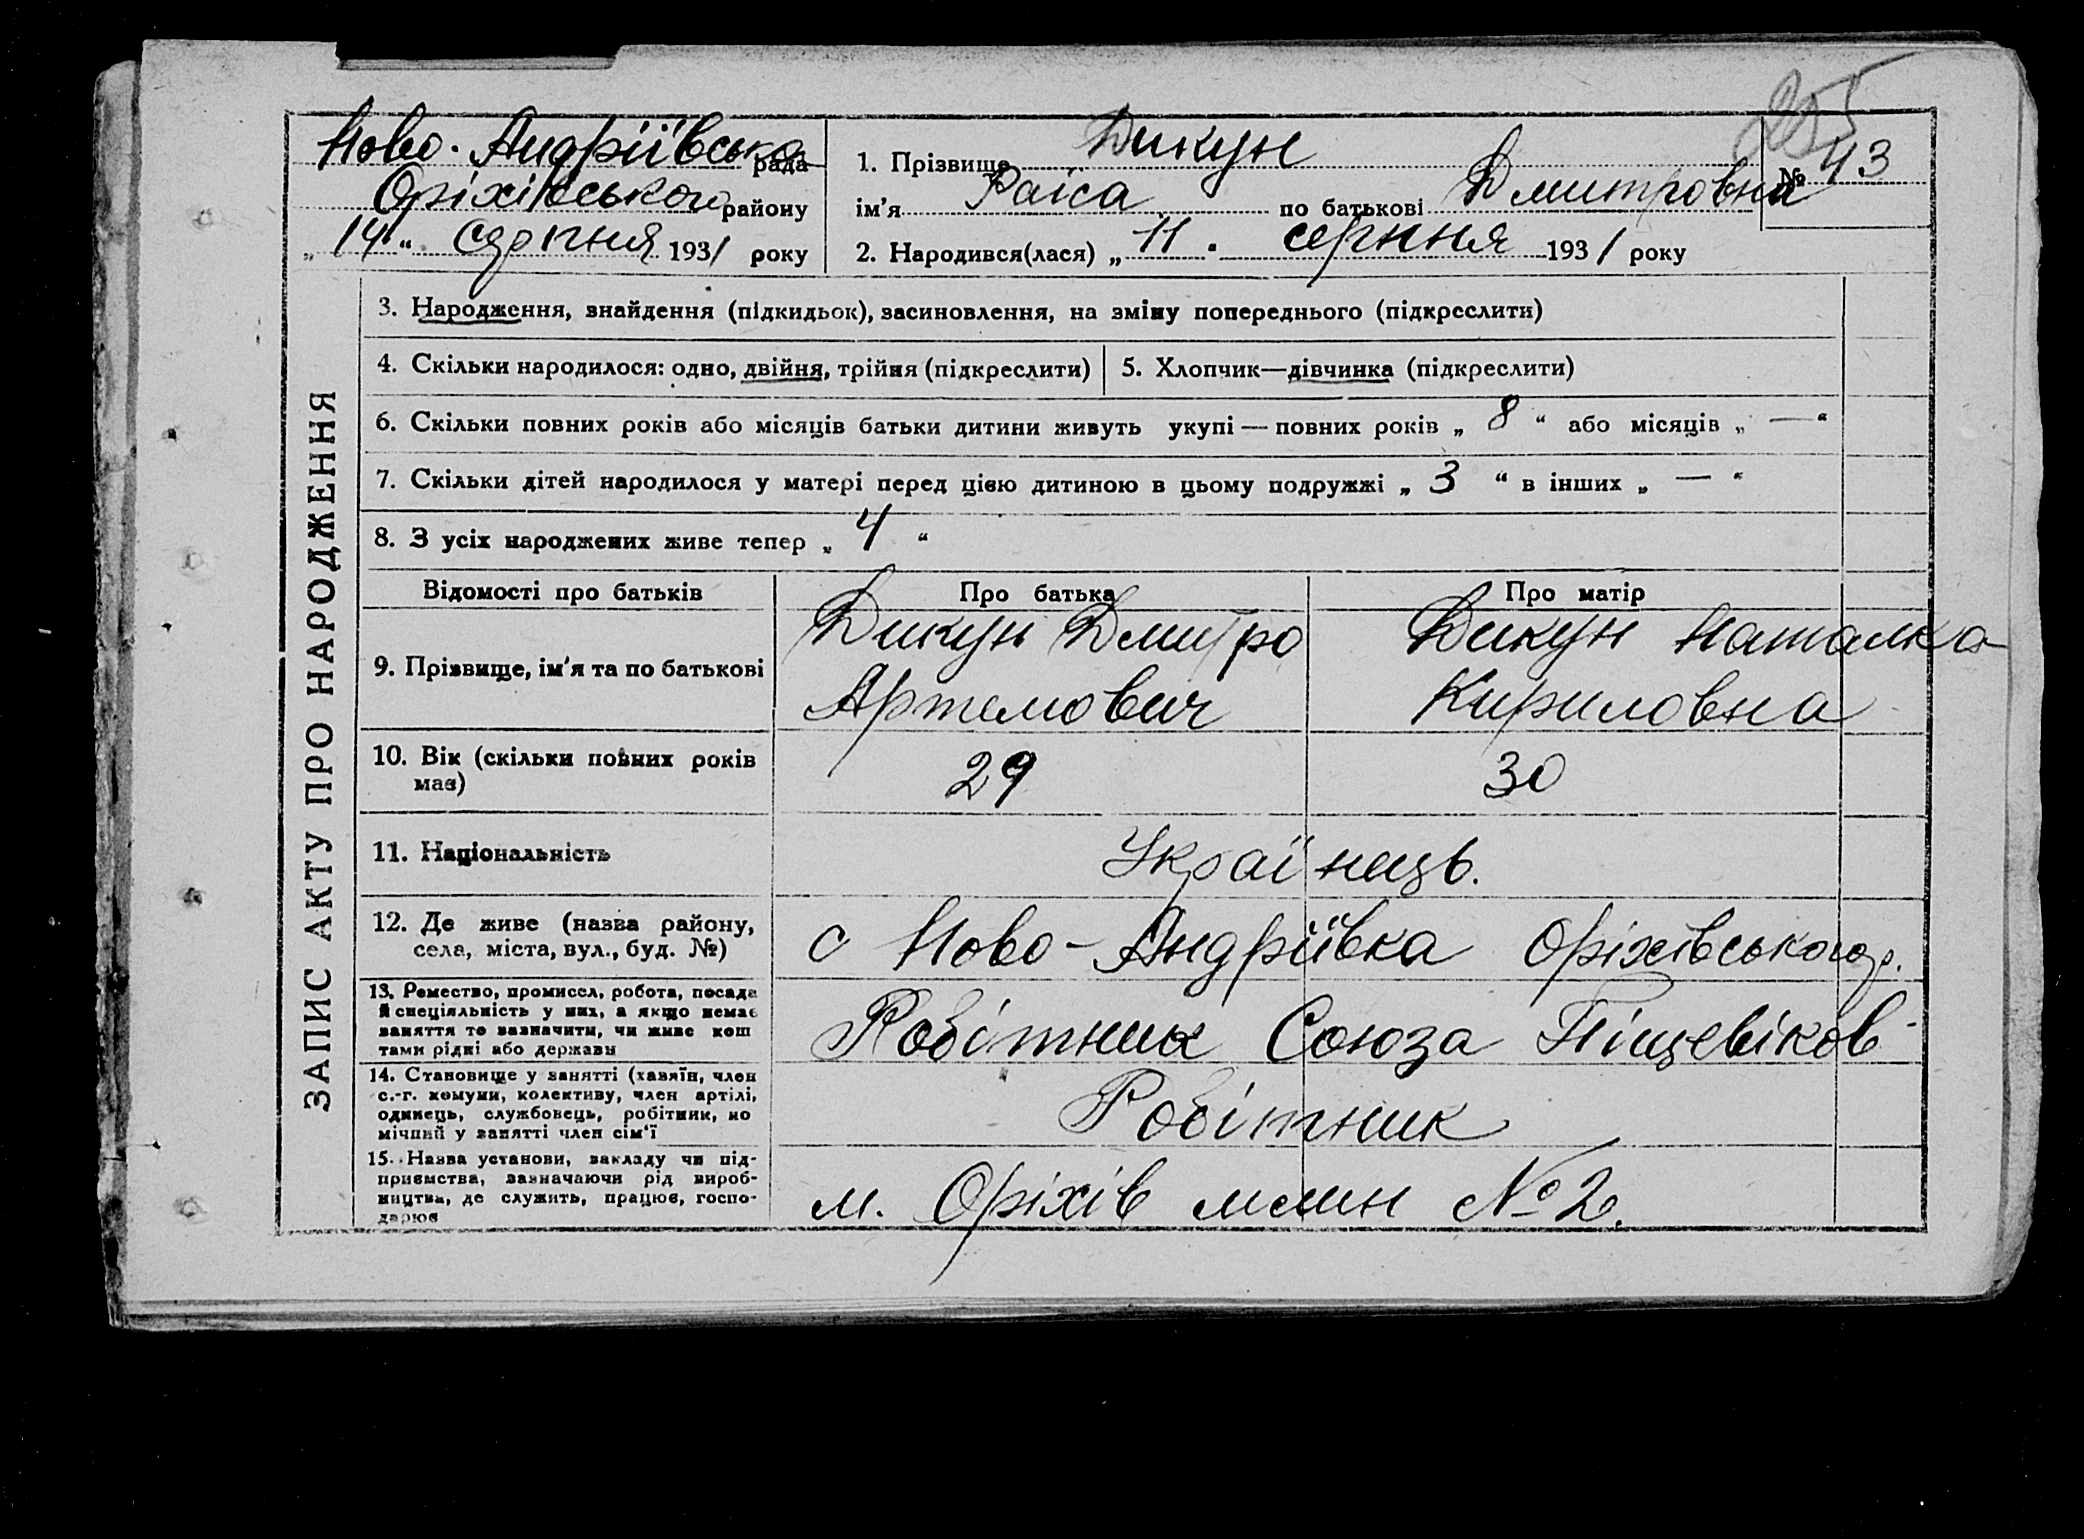 255
Ново-Андріївська рада
Оріхівського району
„14“ серпня 1931 року
1. Прізвище Дикун
№ 43
ім’я Раїса по батькові Дмитровна
2. Народився(лася) „11“ серпня 1931 року
ЗАПИС АКТУ ПРО НАРОДЖЕННЯ
3. Народження, знайдення (підкидьок), засиновлення, на зміну попереднього (підкреслити)
4. Скільки народилося: одно, двійня, трійня (підкреслити) 5. Хлопчик—дівчинка (підкреслити)
6. Скільки повних років або місяців батьки дитини живуть укупі — повних років „ 8 “ або місяців „ — “
7. Скільки дітей народилося у матері перед цією дитиною в цьому подружжі „ 3 “ в інших „ — “
8. З усіх народжених живе тепер „ 4 “
Відомості про батьків Про батька Про матір
9. Прізвище, ім’я та по батькові
Дикун Дмитро
Артемович
Дикун Наталка
Кириловна
10. Вік (скільки повних років
має)
29 30
11. Національність Українець.
12. Де живе (назва району,
села, міста, вул., буд. №)
с Ново-Андріївка Оріхівського р.
13. Ремество, промисел, робота, посада
й спеціяльність у них, а якщо немає
заняття то зазначити, чи живе кош
тами рідні або держави
Робітник Союза Піщевіков
14. Становище у занятті (хазяїн, член
с.-г. комуни, колективу, член артілі,
одинець, службовець, робітник, по
мічний у занятті член сім’ї
Робітник
15. Назва установи, закладу чи під-
приємства, зазначаючи рід вироб-
ництва, де служить, працює, госпо-
дарює
м. Оріхів млин №2.